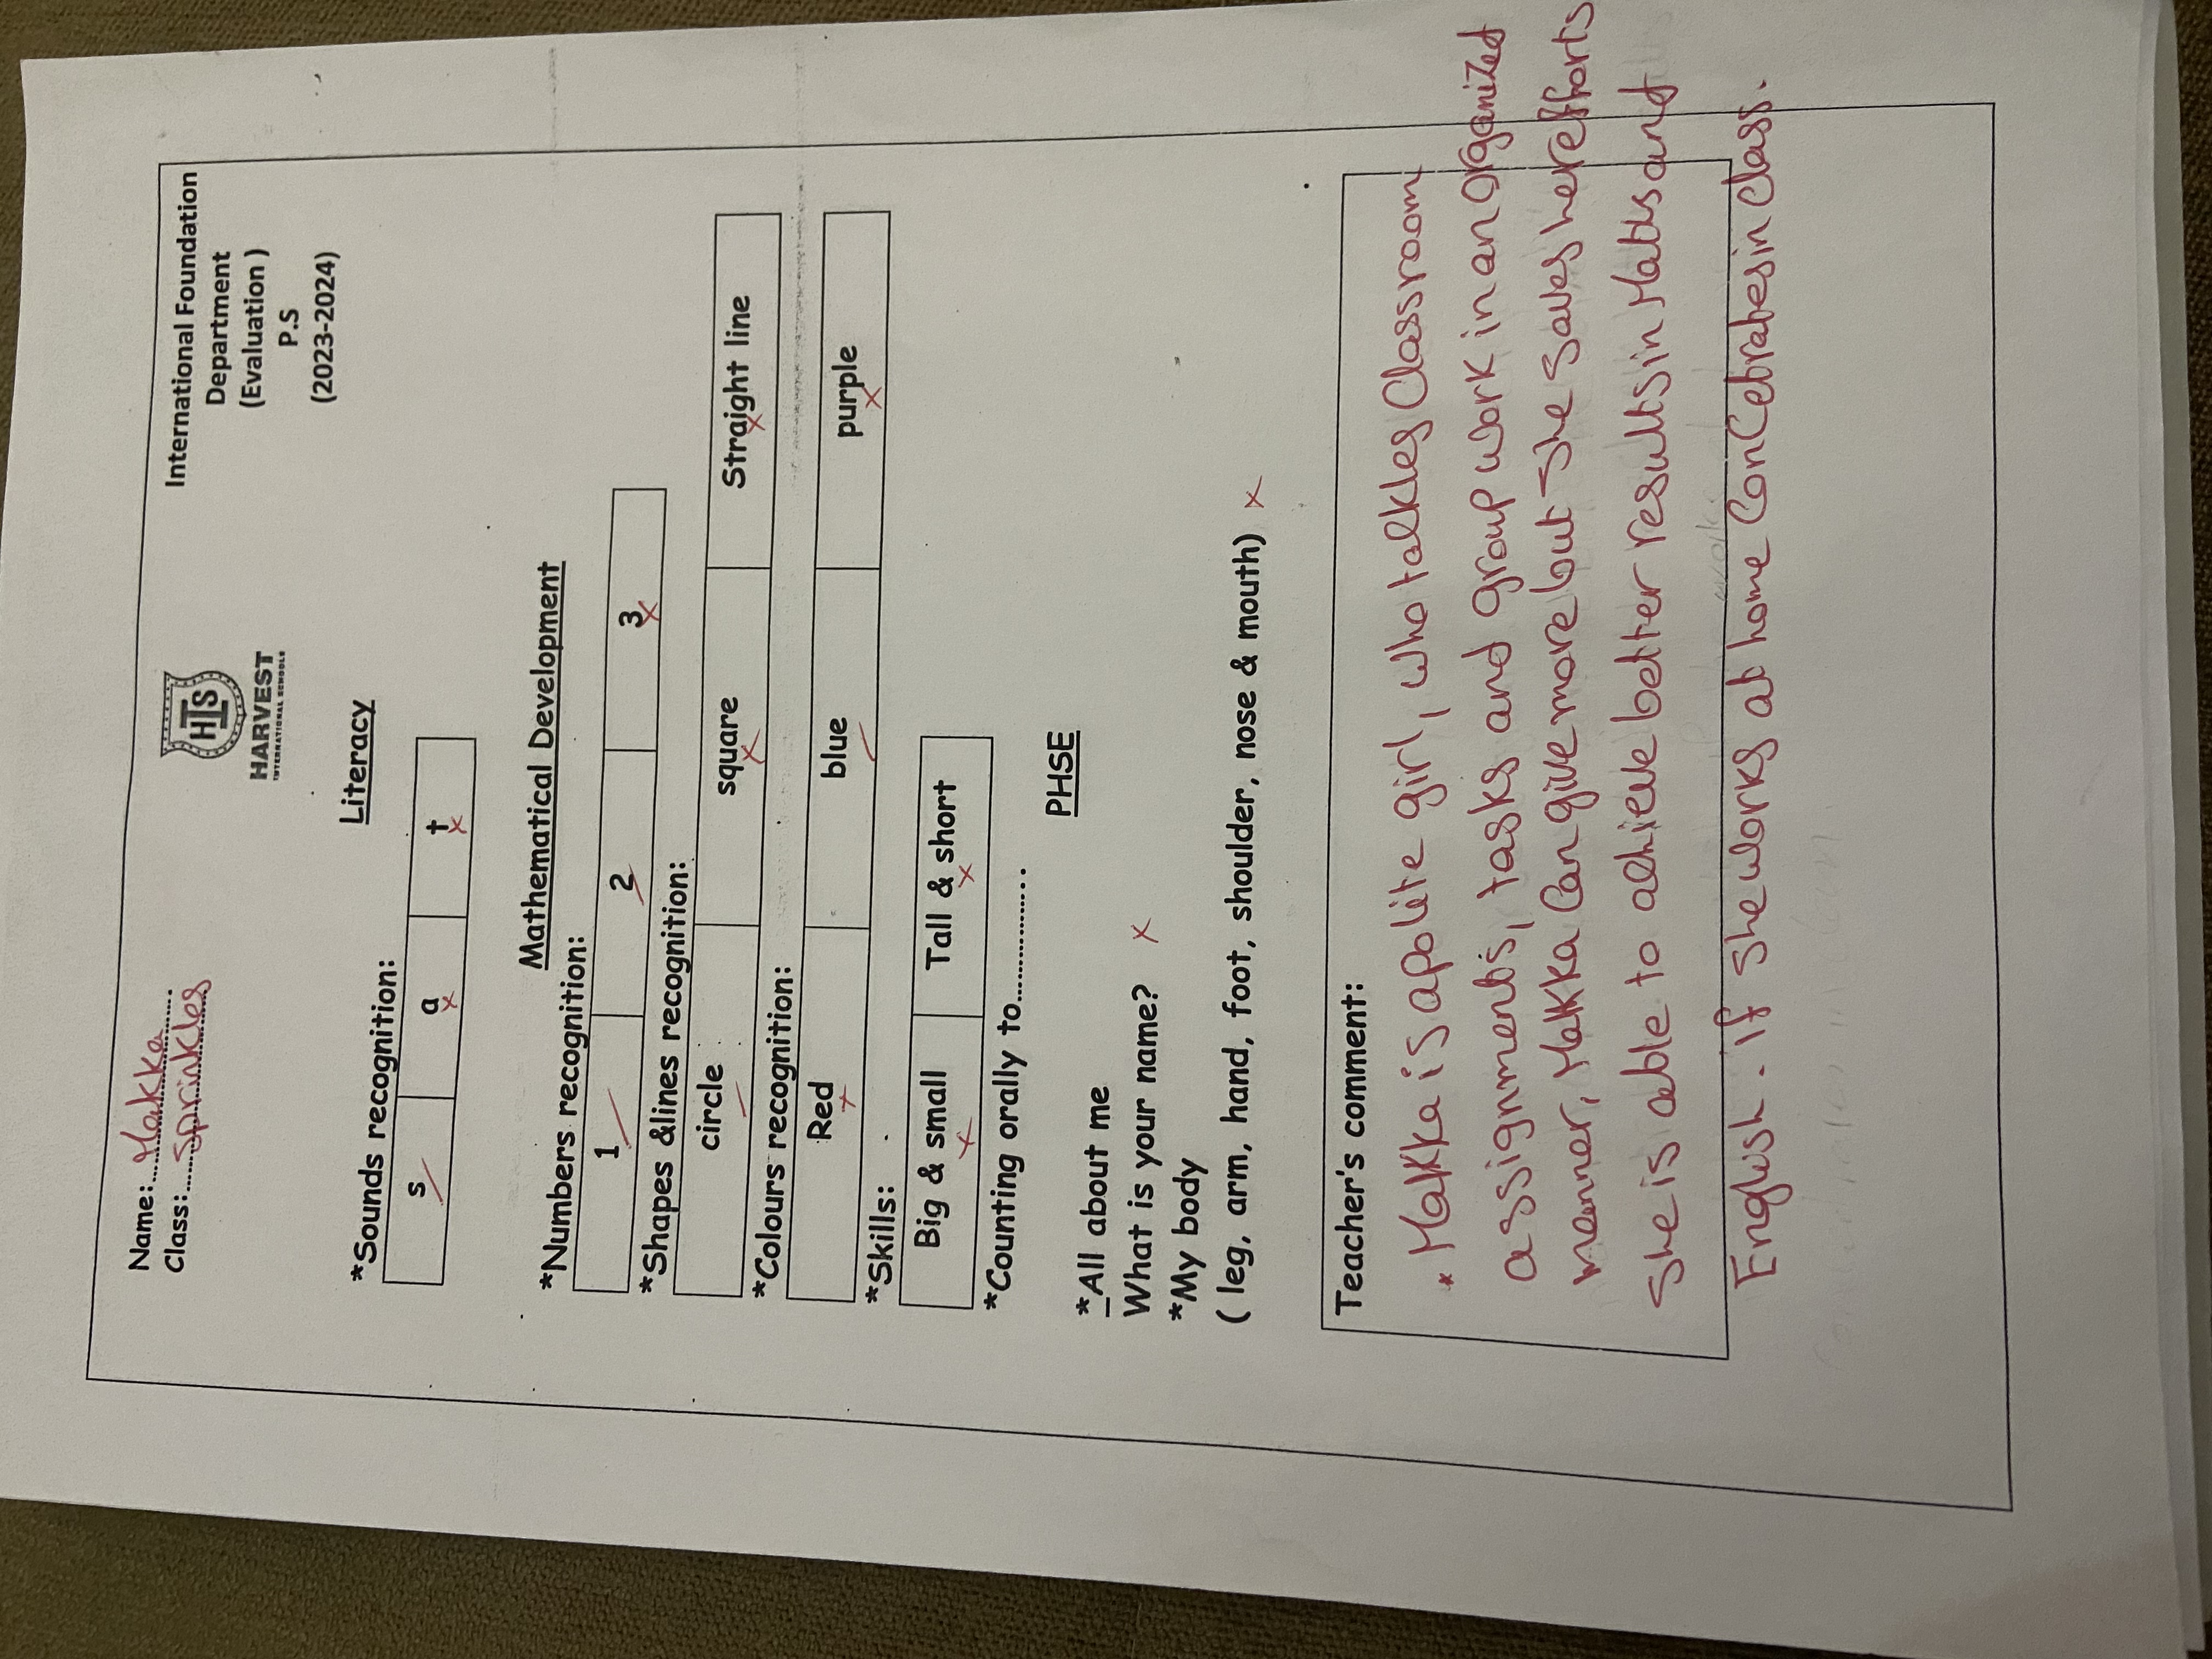 International Foundation
Department
(Evaluation )
P.S
(2023-2024)
HIS
HARVEST
INTERNATIONAL SCHOOLS
Name:....Makka..........
Class:....Sprinkles
Literacy
*Sounds recognition:
s a t
Mathematical Development
*Numbers recognition:
1 2 3
*Shapes &lines recognition:
circle square Straight line
*Colours recognition:
Red blue purple
*Skills:
Big & small Tall & short
*Counting orally to................
PHSE
*All about me
What is your name? x
*My body
( leg, arm, hand, foot, shoulder, nose & mouth) x
Teacher's comment:
* Makka is a polite girl, who talkles Classroom
assignments, tasks and group work in an organized
manner, Makka Can give more but she saves her efforts
she is able to achieve better results in Maths and
English. if she works at home Concetrates in class.